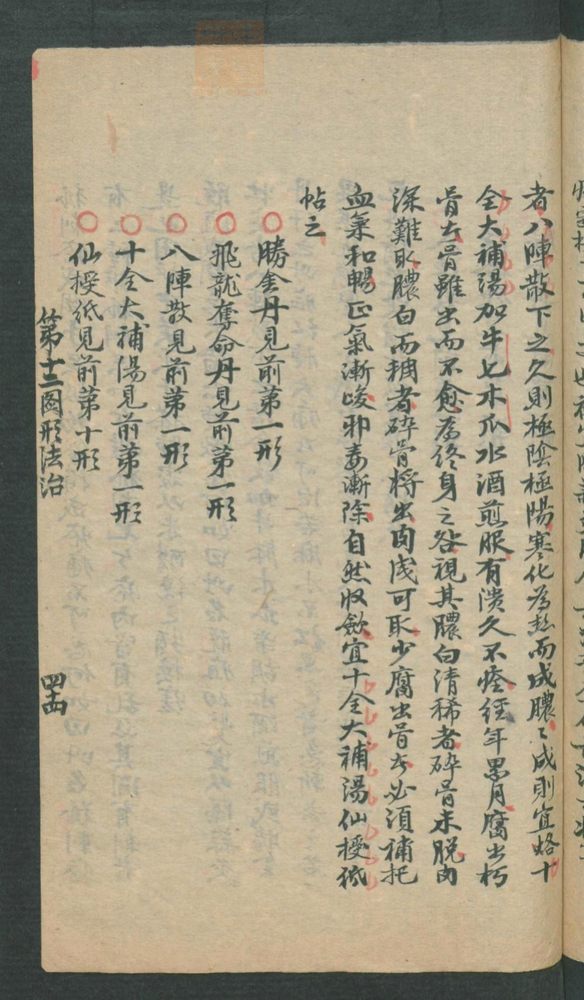 者八陣散下之久則極陰極陽寒化為熱而成膿〻成則宜烙十
全大補湯加牛七木瓜水酒煎服有潰久不痊經年累月腐出朽
骨去骨雖出而不愈為終身之咎視其膿白清稀者碎骨未脫肉
深難取膿白而稠者碎骨將出肉浅可取少腐出骨去必須補把
血氣和暢正氣漸復邪毒漸除自然收歛宜十全大補湯仙授紙
帖之
勝金丹見前第一形
飛龍奪命丹見前第一形
八陣散見前第一形
十全大補湯見前第一形
仙授紙見前第十形
第十三圖形法治